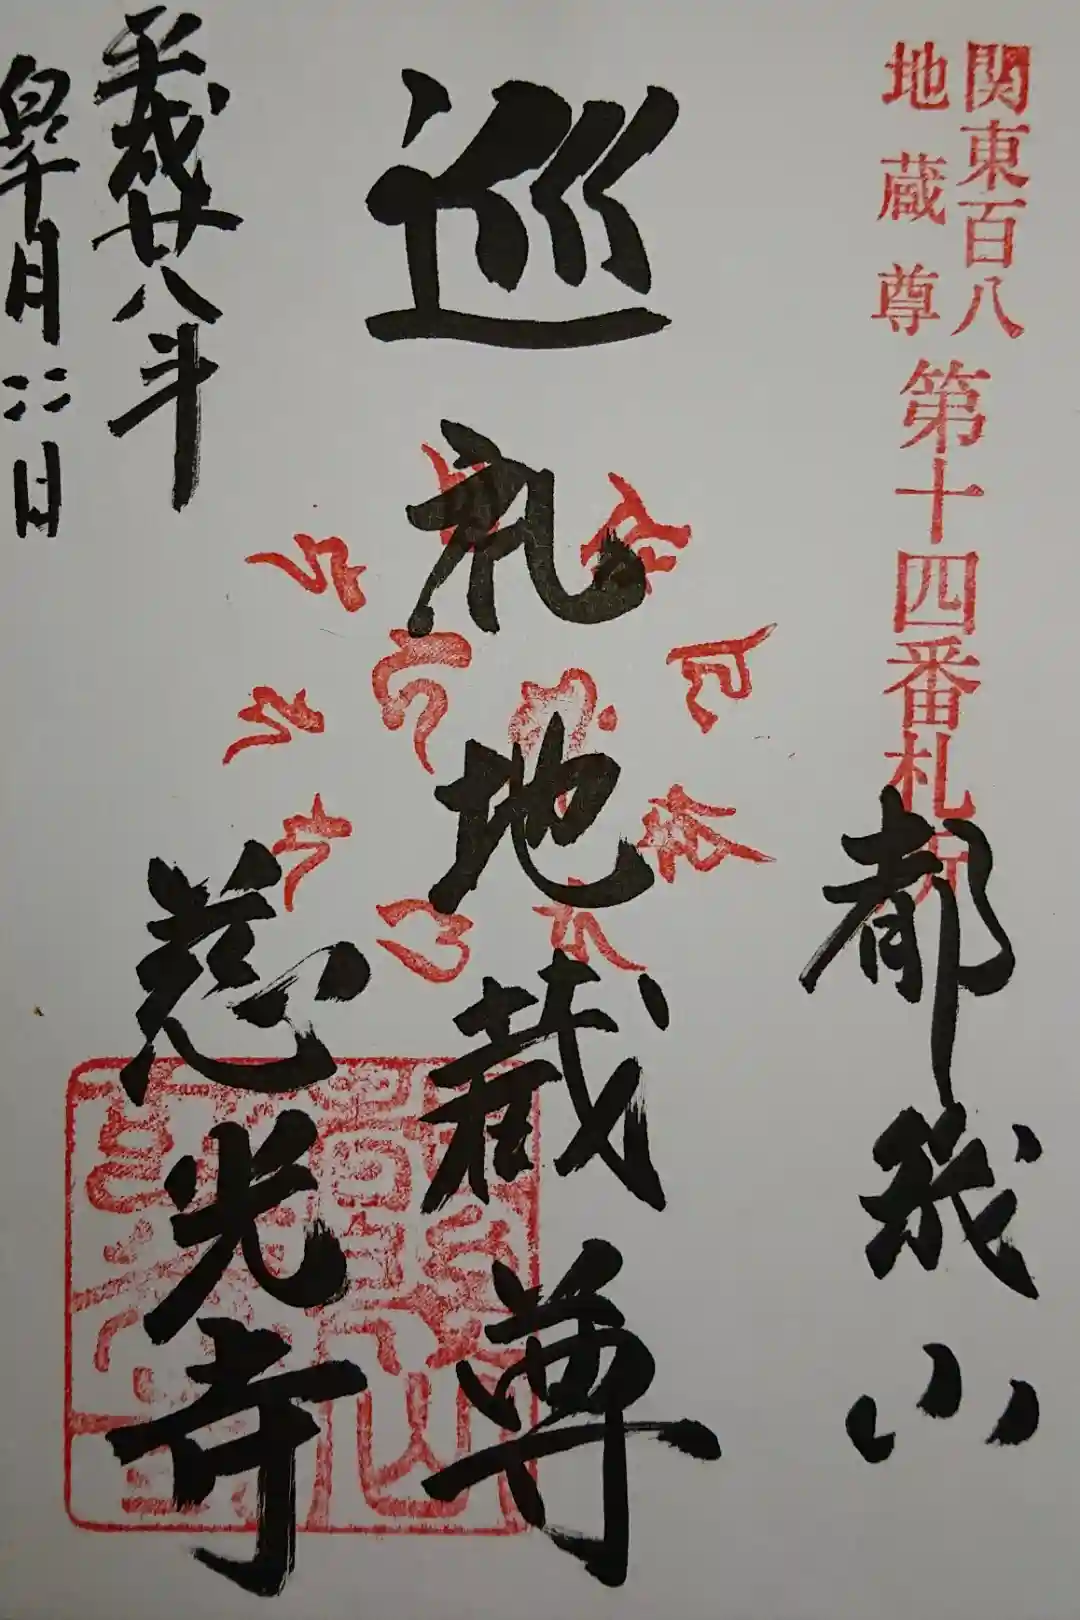 関東百八
地蔵尊
第十四番札所
都幾山
巡礼地蔵尊
慈光寺
平成廿八年
皐月 日